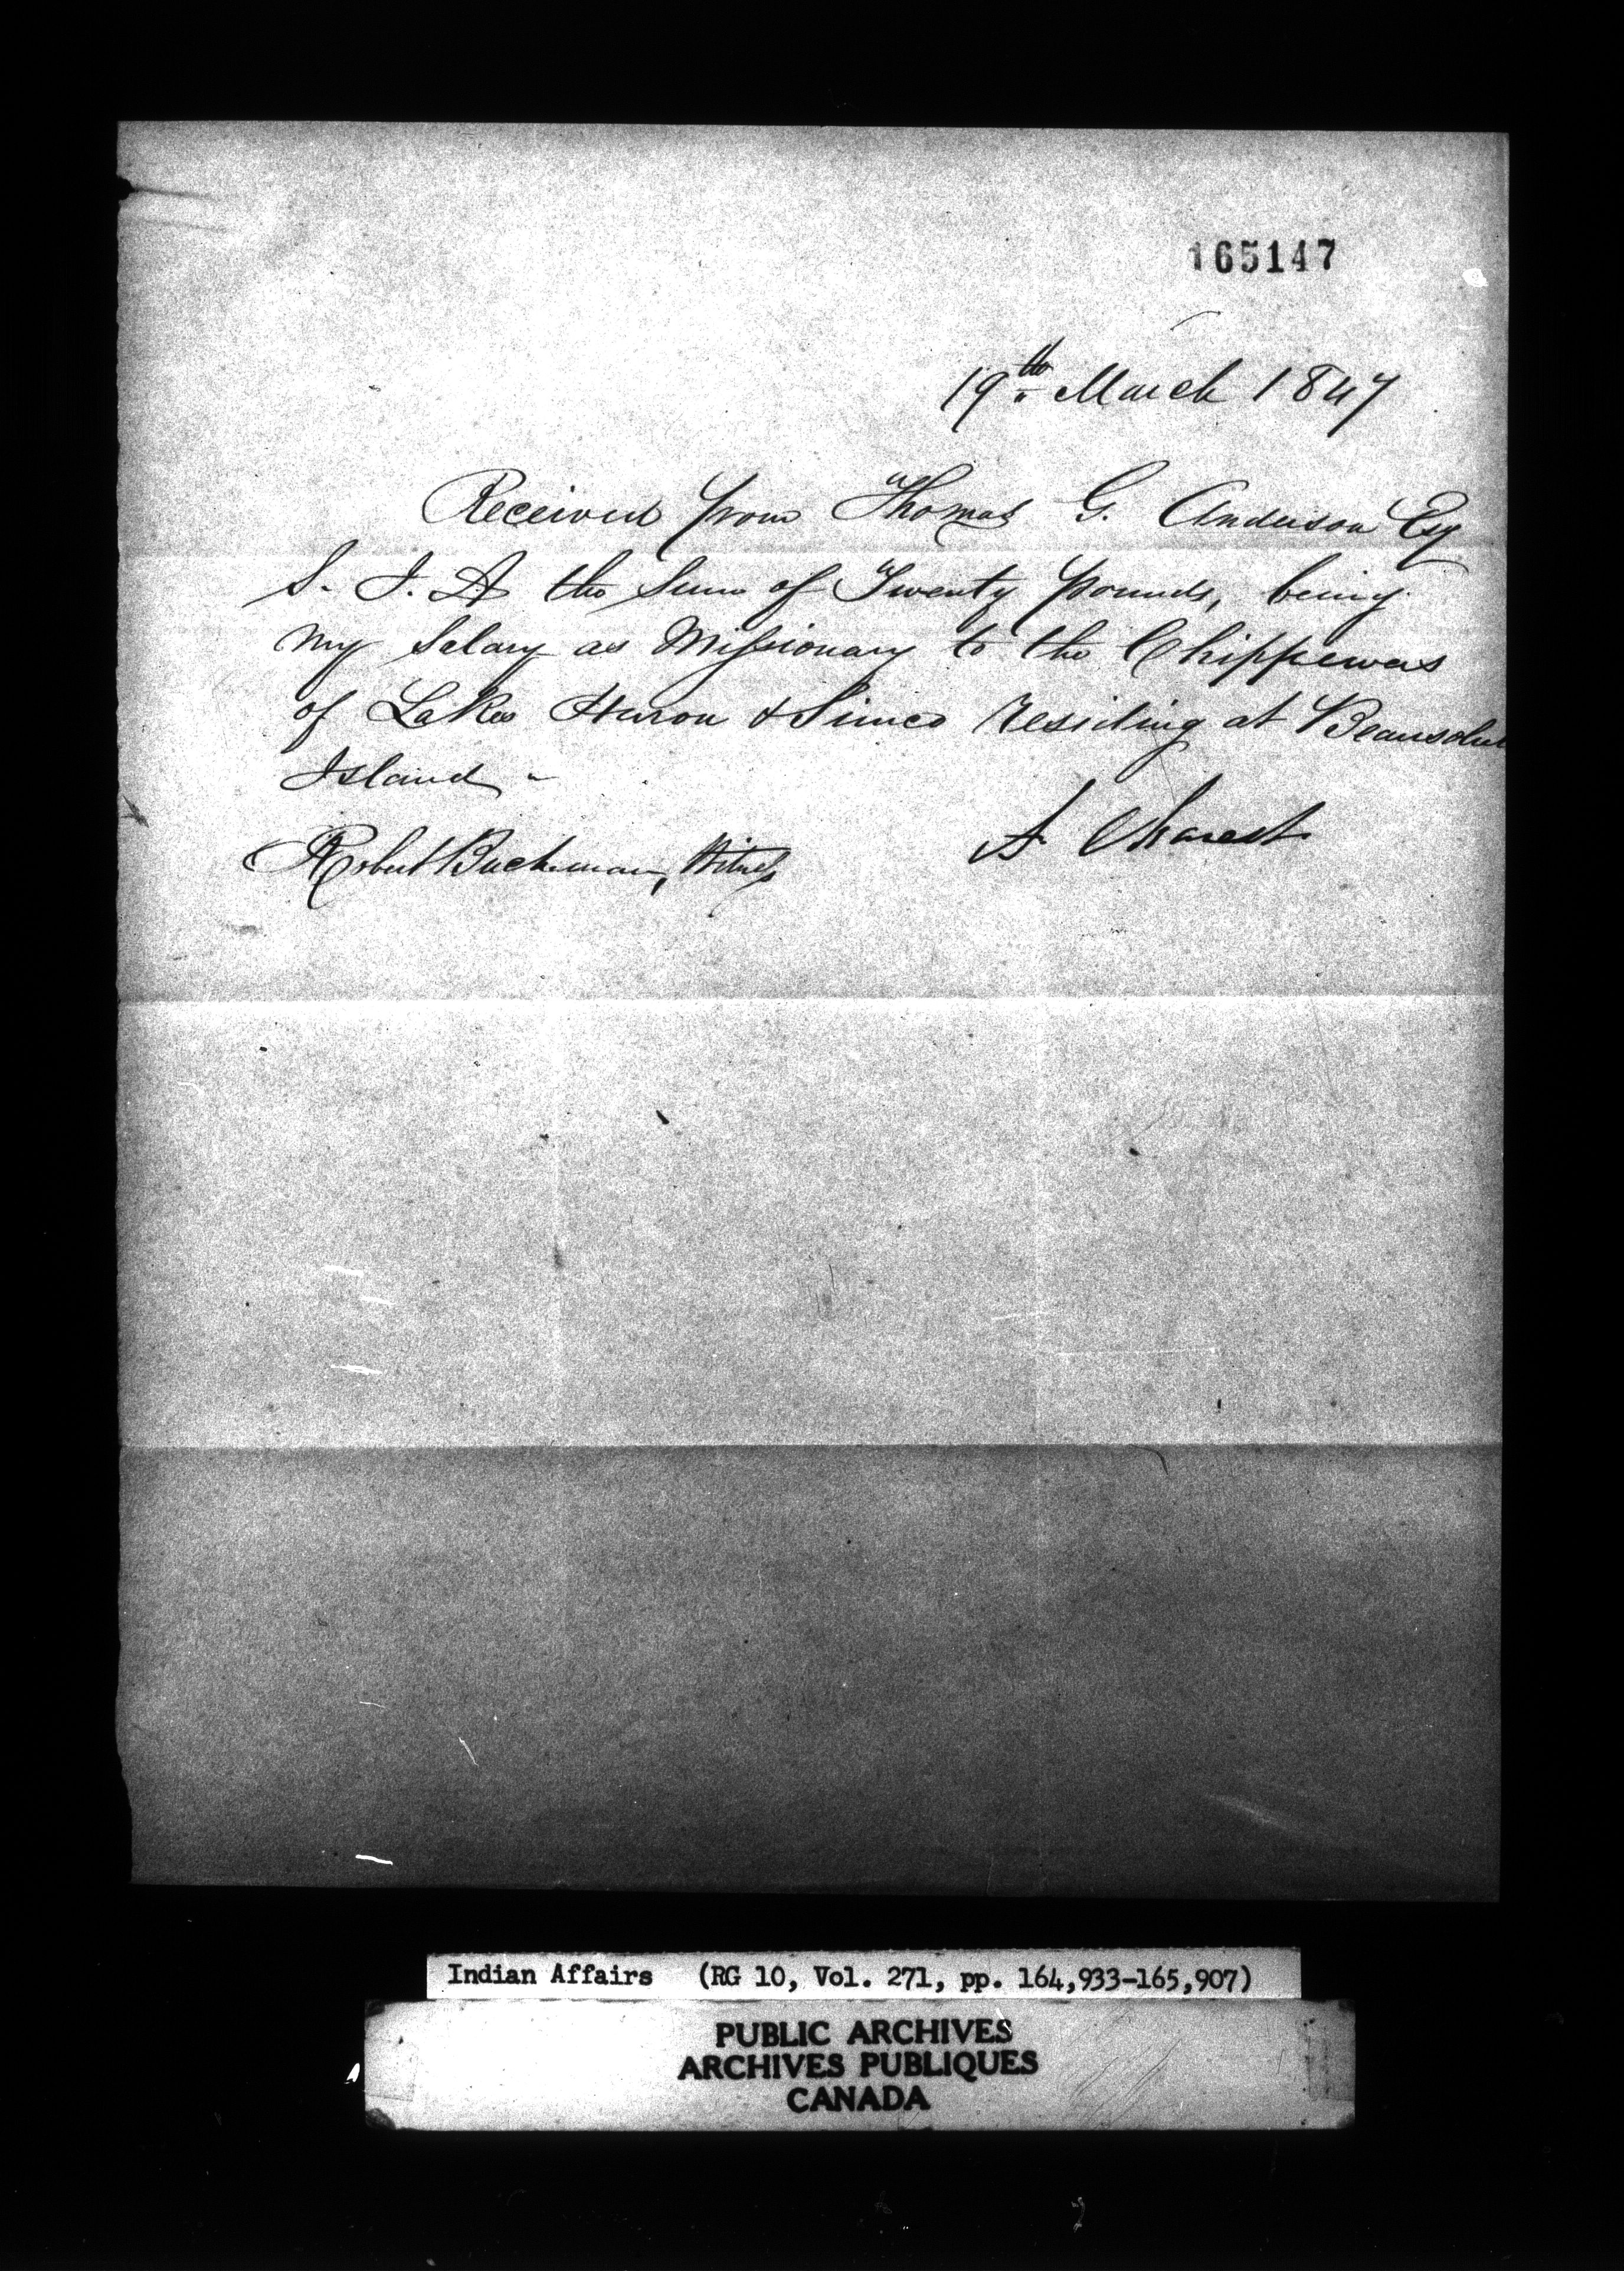 165147
19th March 1847
Received from Thomas G. Anderson Esq
S. I. A the Sum of Twenty pounds, being
my Salary as Missionary to the Chippewas
of Lakes Huron & Simco residing at Beausolul
Island -
A Charest
Robert Buchanan, Witness
Indian Affairs (RG 10, Vol. 271, pp. 164,933-165,907)
PUBLIC ARCHIVES
ARCHIVES PUBLIQUES
CANADA